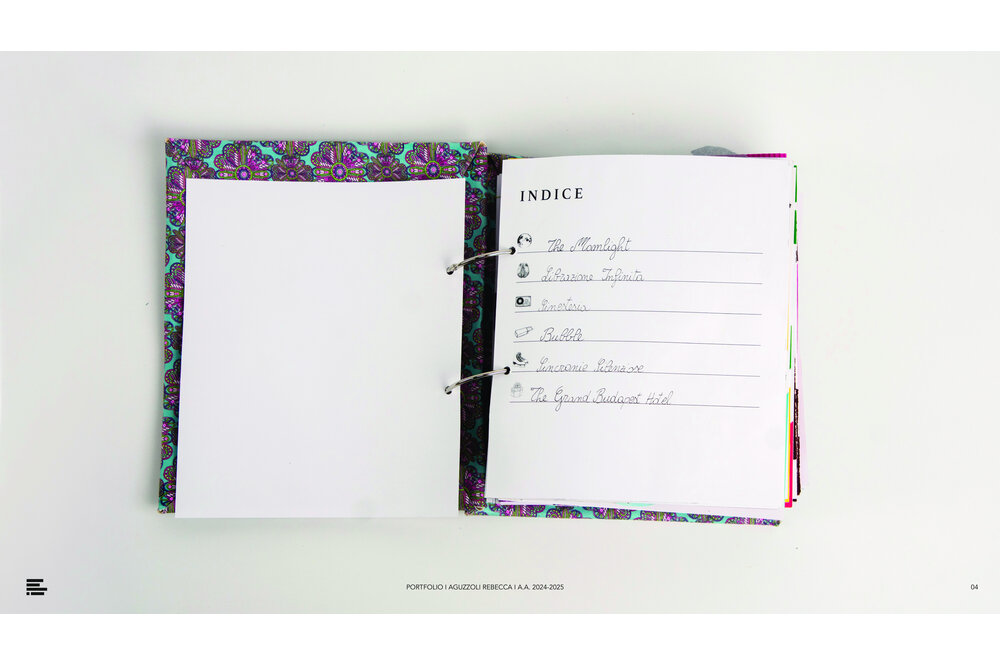 INDICE
The Moonlight
Librazione Infinita
Sinestesia
Bubble
Sincronie Silenziose
The Grand Budapest Hotel
PORTFOLIO I AGUZZOLI REBECCA I A.A. 2024-2025
04